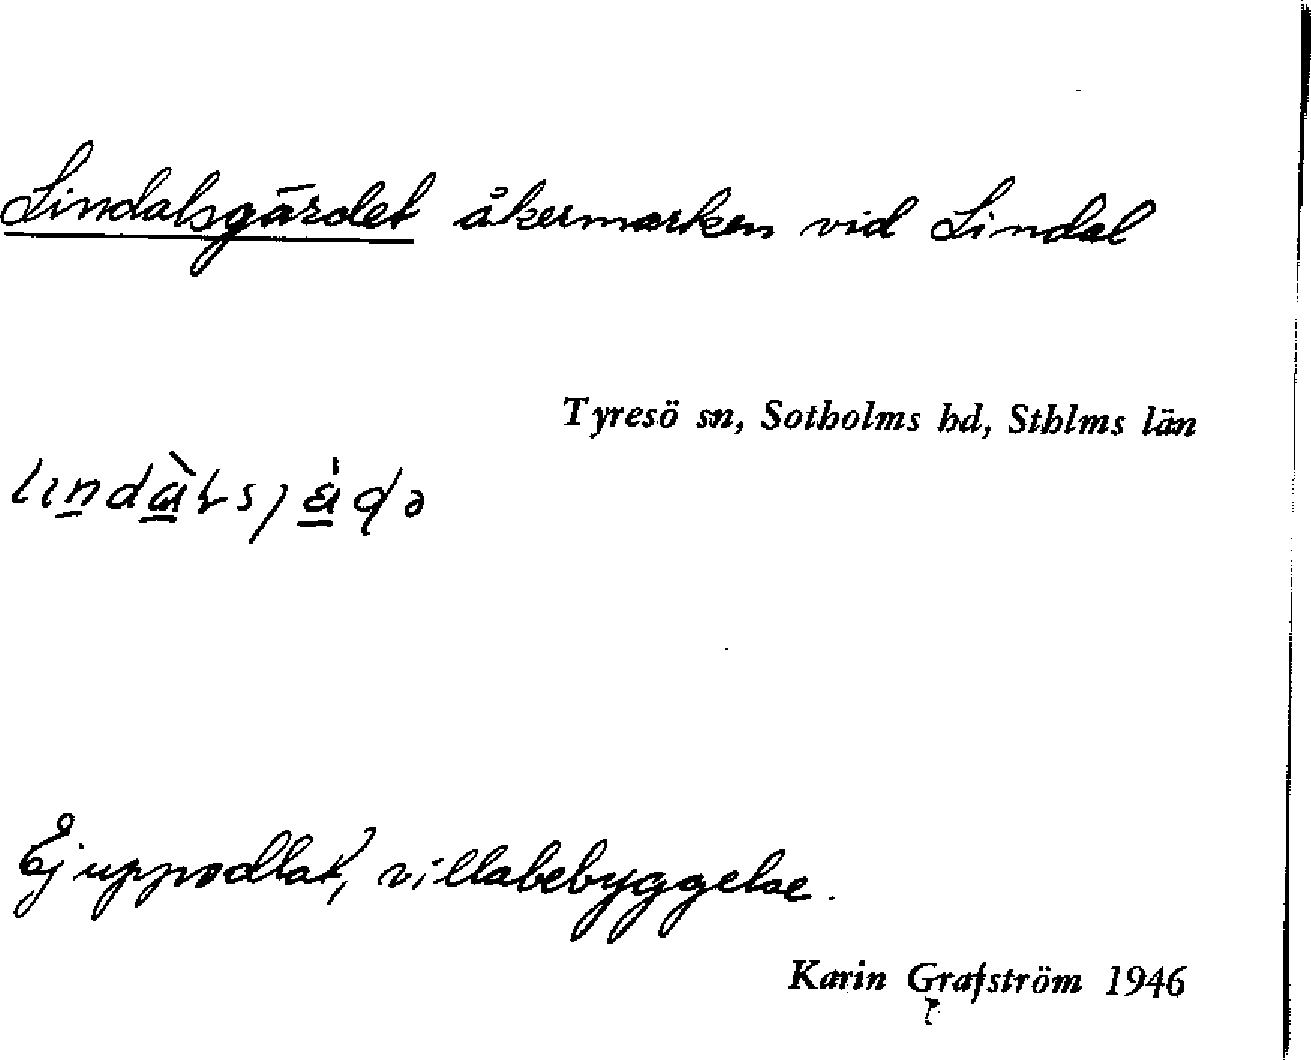 Lindalsgärdet åkermarken vid Lindal
Tyresö sn, Sotholms hd, Sthlms län
Ej uppodlat, villabebyggelse.
Karin Grafström 1946